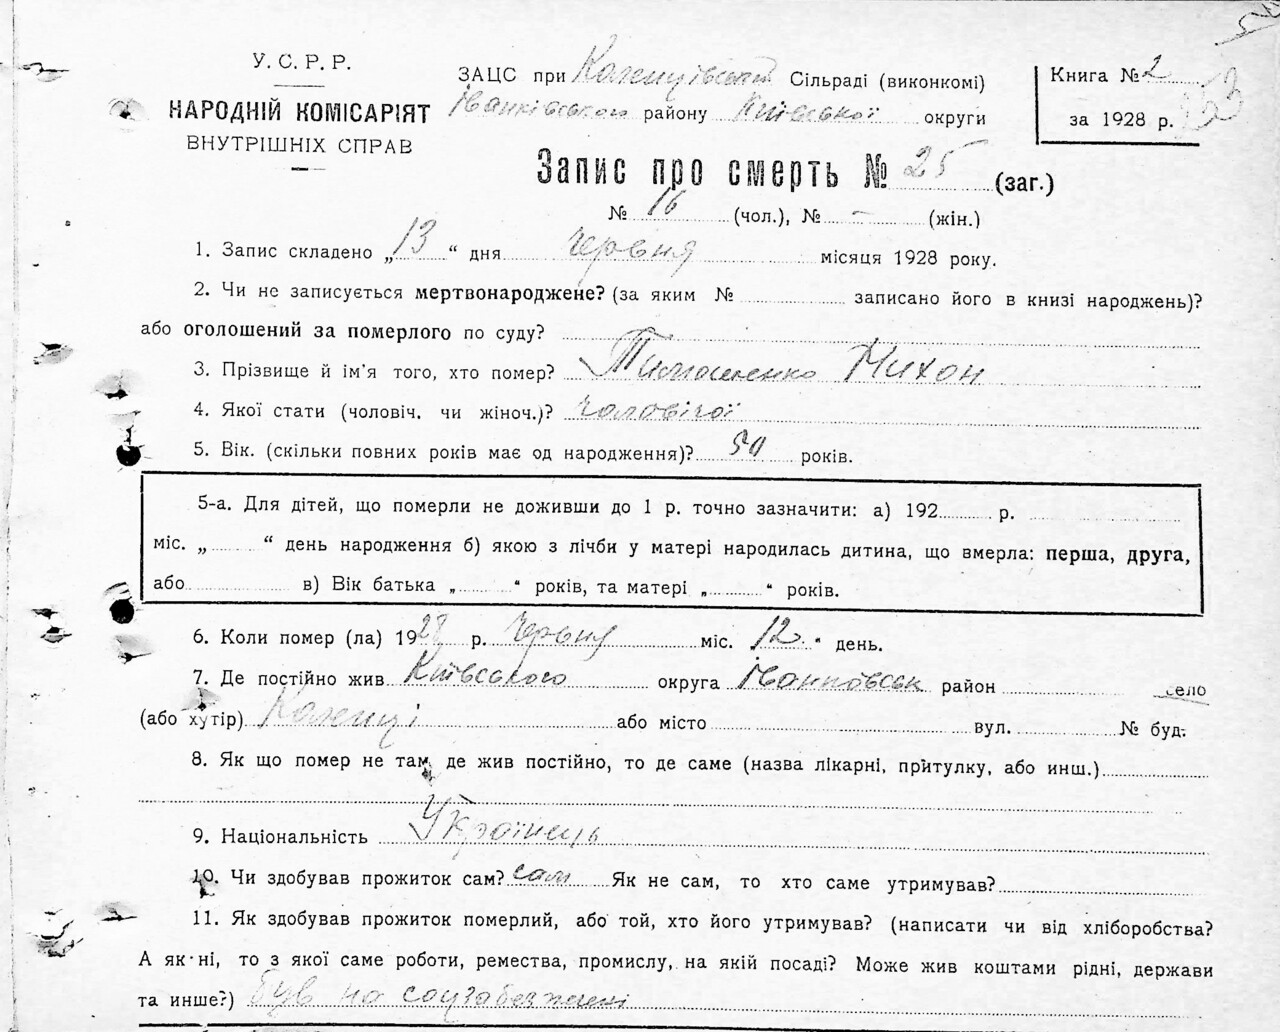 У. С. Р. Р.
НАРОДНІЙ КОМІСАРІЯТ
ВНУТРІШНІХ СПРАВ
ЗАЦС при Каленцівській Сільраді (виконкомі)
Іванківського району Київської округи
Книга № 2
за 1928 р.
Запис про смерть № 25 (заг.)
№ 16 (чол.), № – (жін.)
1. Запис складено „13“ дня Червня місяця 1928 року.
2. Чи не записується мертвонароджене? (за яким № записано його в книзі народжень)?
або оголошений за померлого по суду?
3. Прізвище й ім'я того, хто помер? Тимошенко Нихон
4. Якої стати (чоловіч. чи жіноч.)? Чоловічої
5. Вік. (скільки повних років має од народження)? 50 років.
5-а. Для дітей, що померли не доживши до 1 р. точно зазначити: а) 192 р.
міс. „ “ день народження б) якою з лічби у матері народилась дитина, що вмерла: перша, друга,
або в) Вік батька „ “ років, та матері „ “ років.
6. Коли помер (ла) 1928 р. Червня міс. 12 " день.
7. Де постійно жив Київського округа Іванковськ район село
(або хутір) Каленці або місто вул. № буд.
8. Як що помер не там, де жив постійно, то де саме (назва лікарні, притулку, або инш.)
9. Національність Українець
10. Чи здобував прожиток сам? сам Як не сам, то хто саме утримував?
11. Як здобував прожиток померлий, або той, хто його утримував? (написати чи від хліборобства?
А як ні, то з якої саме роботи, ремества, промислу, на якій посаді? Може жив коштами рідні, держави
та инше?) був на соцзабезпечені